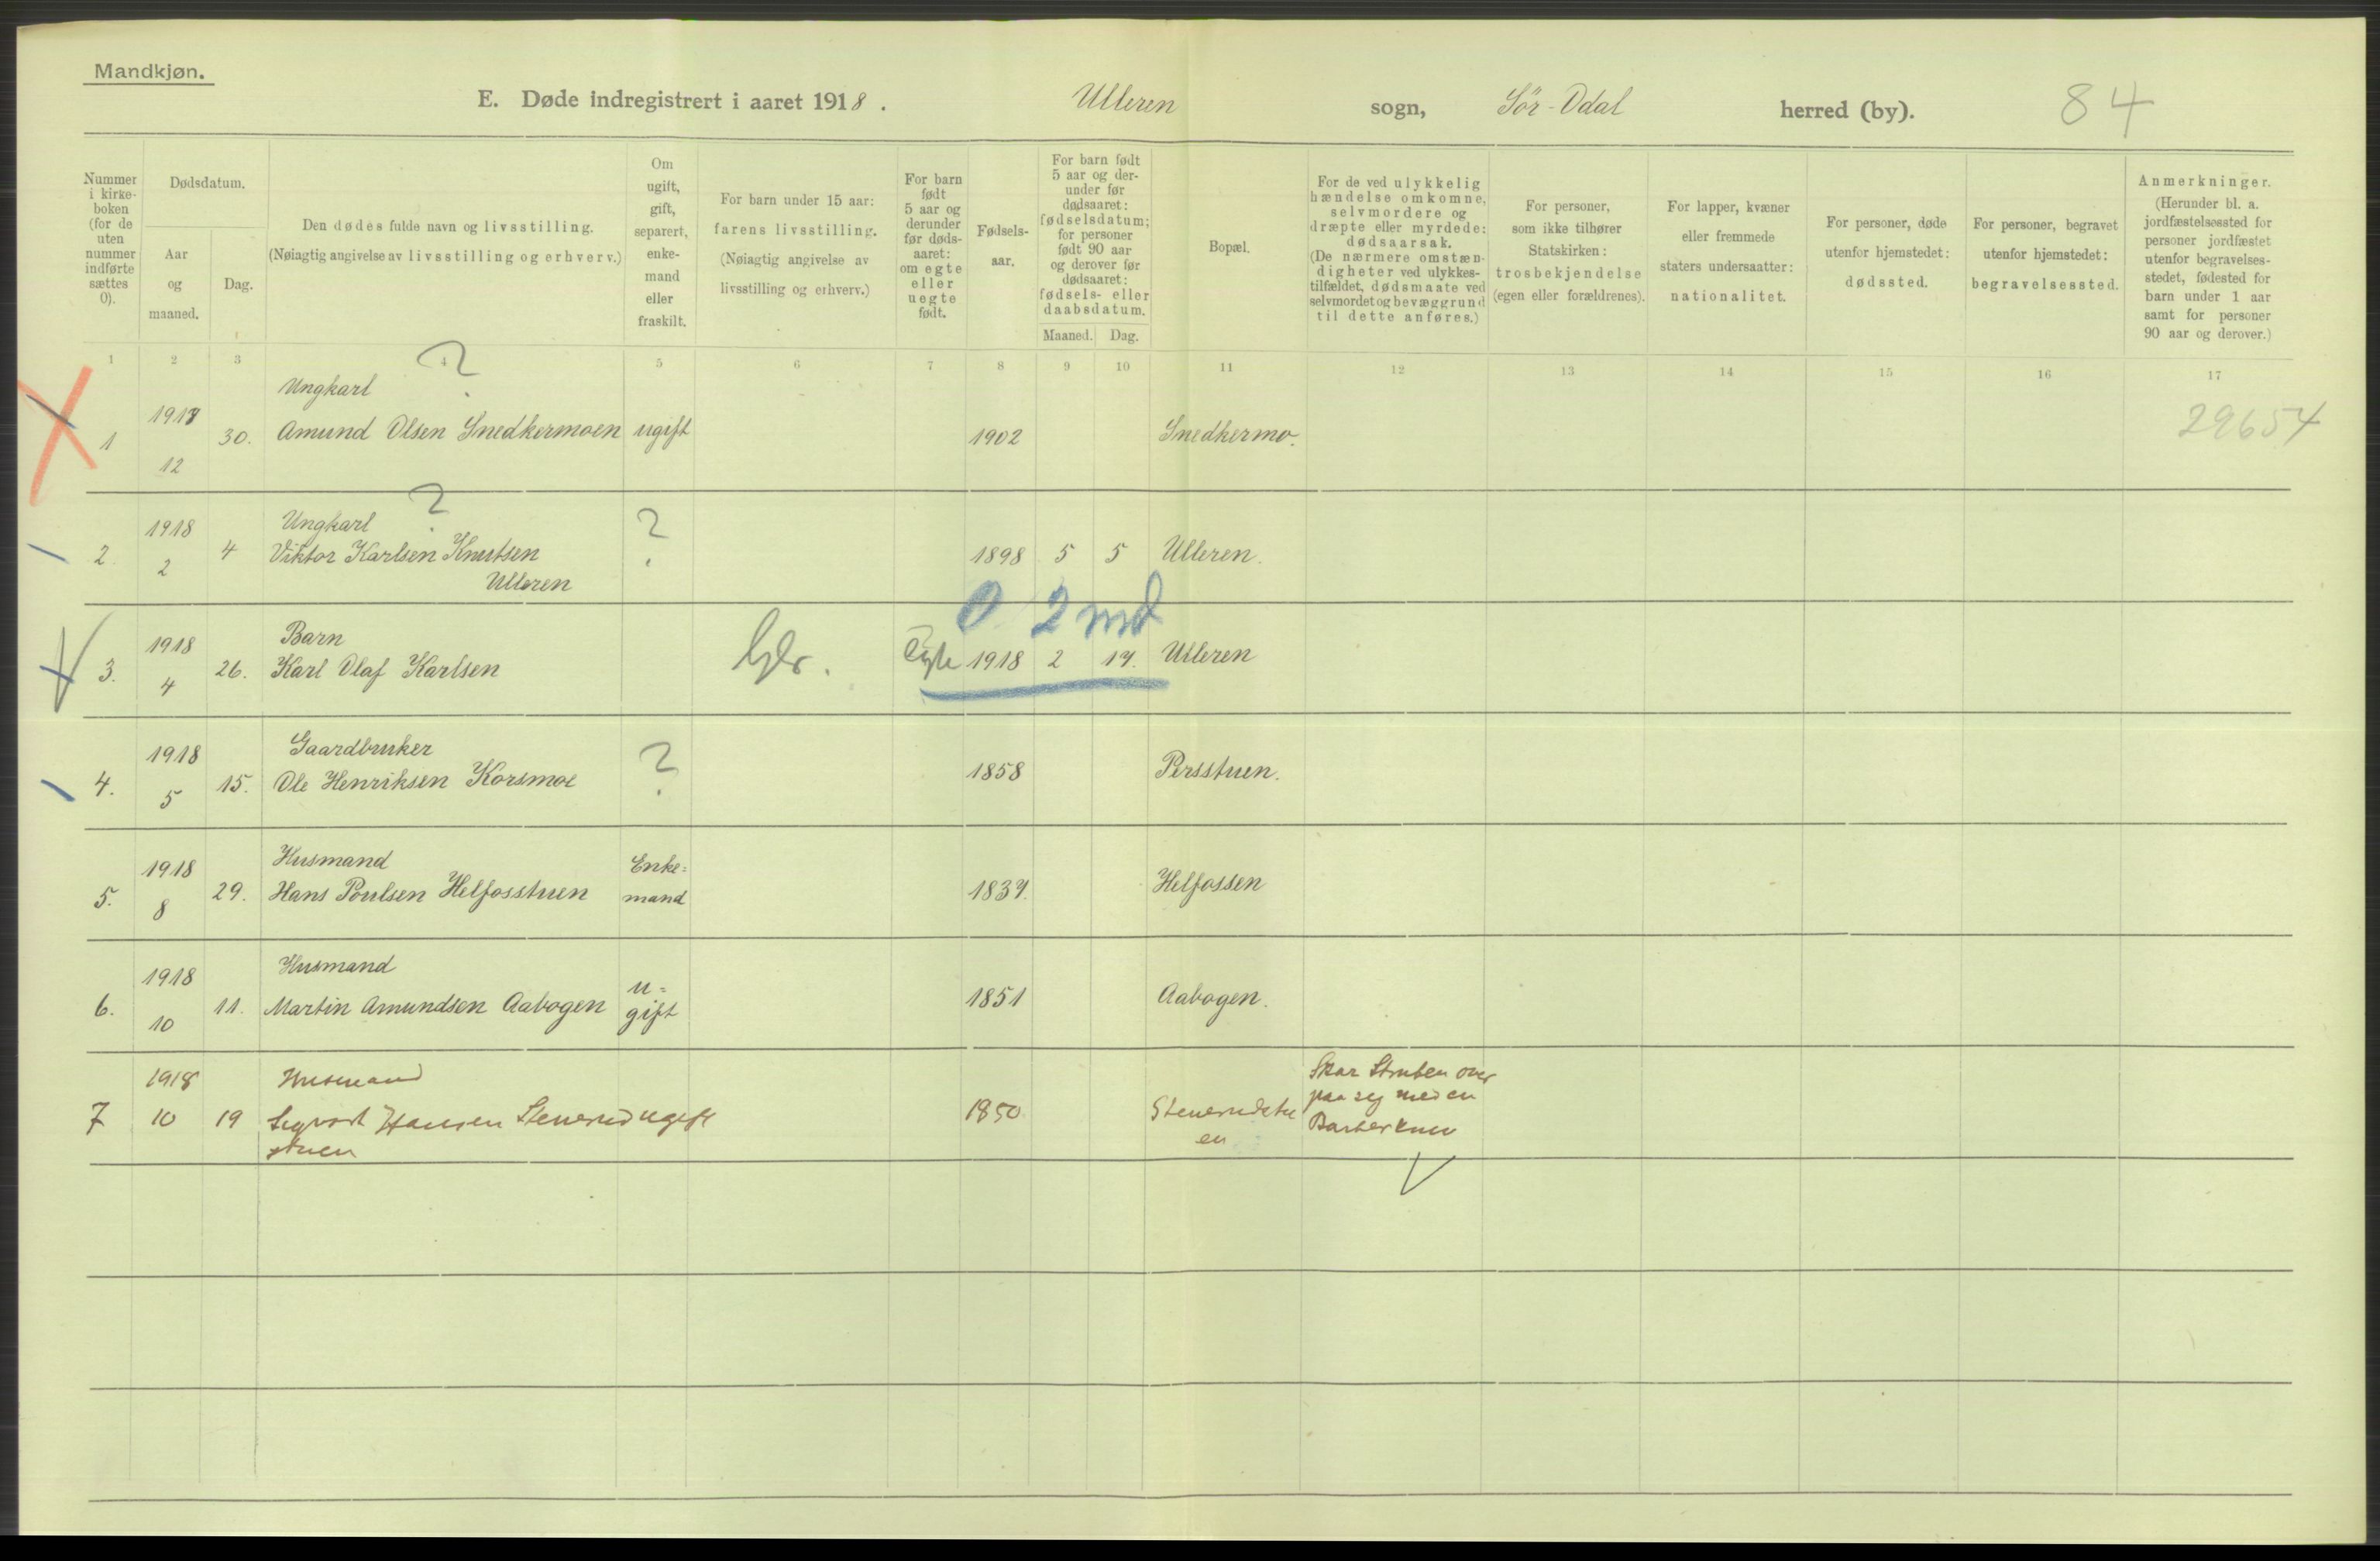 Mandkjøn.
E. Døde indregistrert i aaret 1918. Ulleren sogn, Sör-Odal herred (by). 84
Nummer
i kirke-
boken
(for de
uten
nummer
indførte
sættes
0).
Dødsdatum.
Aar
og
maaned.
Dag.
Den dødes fulde navn og livsstilling.
(Nøiagtig angivelse av livsstilling og erhverv.)
Om
ugift,
gift,
separert,
enke-
mand
eller
fraskilt.
For barn under 15 aar:
farens livsstilling.
(Nøiagtig angivelse av
livsstilling og erhverv.)
For barn
født
5 aar og
derunder
før døds-
aaret:
om egte
eller
uegte
født.
Fødsels-
aar.
For barn født
5 aar og der-
under før
dødsaaret:
fødselsdatum;
for personer
født 90 aar
og derover før
dødsaaret:
fødsels- eller
daabsdatum.
Maaned. Dag.
Bopæl.
For de ved ulykkelig
hændelse omkomne,
selvmordere og
dræpte eller myrdede:
dødsaarsak.
(De nærmere omstæn-
digheter ved ulykkes-
tilfældet, dødsmaate ved
selvmordet og bevæggrund
til dette anføres.)
For personer,
som ikke tilhører
Statskirken:
trosbekjendelse
(egen eller forældrenes).
For lapper, kvæner
eller fremmede
staters undersaatter:
nationalitet.
For personer, døde
utenfor hjemstedet:
dødssted.
For personer, begravet
utenfor hjemstedet:
begravelsessted.
Anmerkninger.
(Herunder bl. a.
jordfæstelsessted for
personer jordfæstet
utenfor begravelses-
stedet, fødested for
barn under 1 aar
samt for personer
90 aar og derover.)
1 2 3 4 5 6 7 8 9 10 11 12 13 14 15 16 17
?
Ungkarl
1 12 30. Amund Olsen Snedkermoen ugift 1902 Snedkermo. 29654
?
1918 Ungkarl ?
2. 2 4 Viktor Karlsen Knutsen 1898 5 5 Ulleren.
Ulleren
0 2 md
1918 Barn
3. 4 26. Karl Olaf Karlsen Egte 1918 2 17. Ulleren
1918 Gaardbruker ?
4. 5 15. Ole Henriksen Korsmoe 1858 Persstuen.
1918 Husmand Enke-
5. 8 29. Hans Poulsen Helfosstuen mand 1837. Helfossen
1918 Husmand u-
6. 10 11. Martin Amundsen Aabogen gift 1851 Aabogen.
1918 Husmand Skar Struben over
7 10 19 Sigvart Hansen Stenerud ugift 1850 Stenerudstu paa seg med en
stuen en Barberkniv